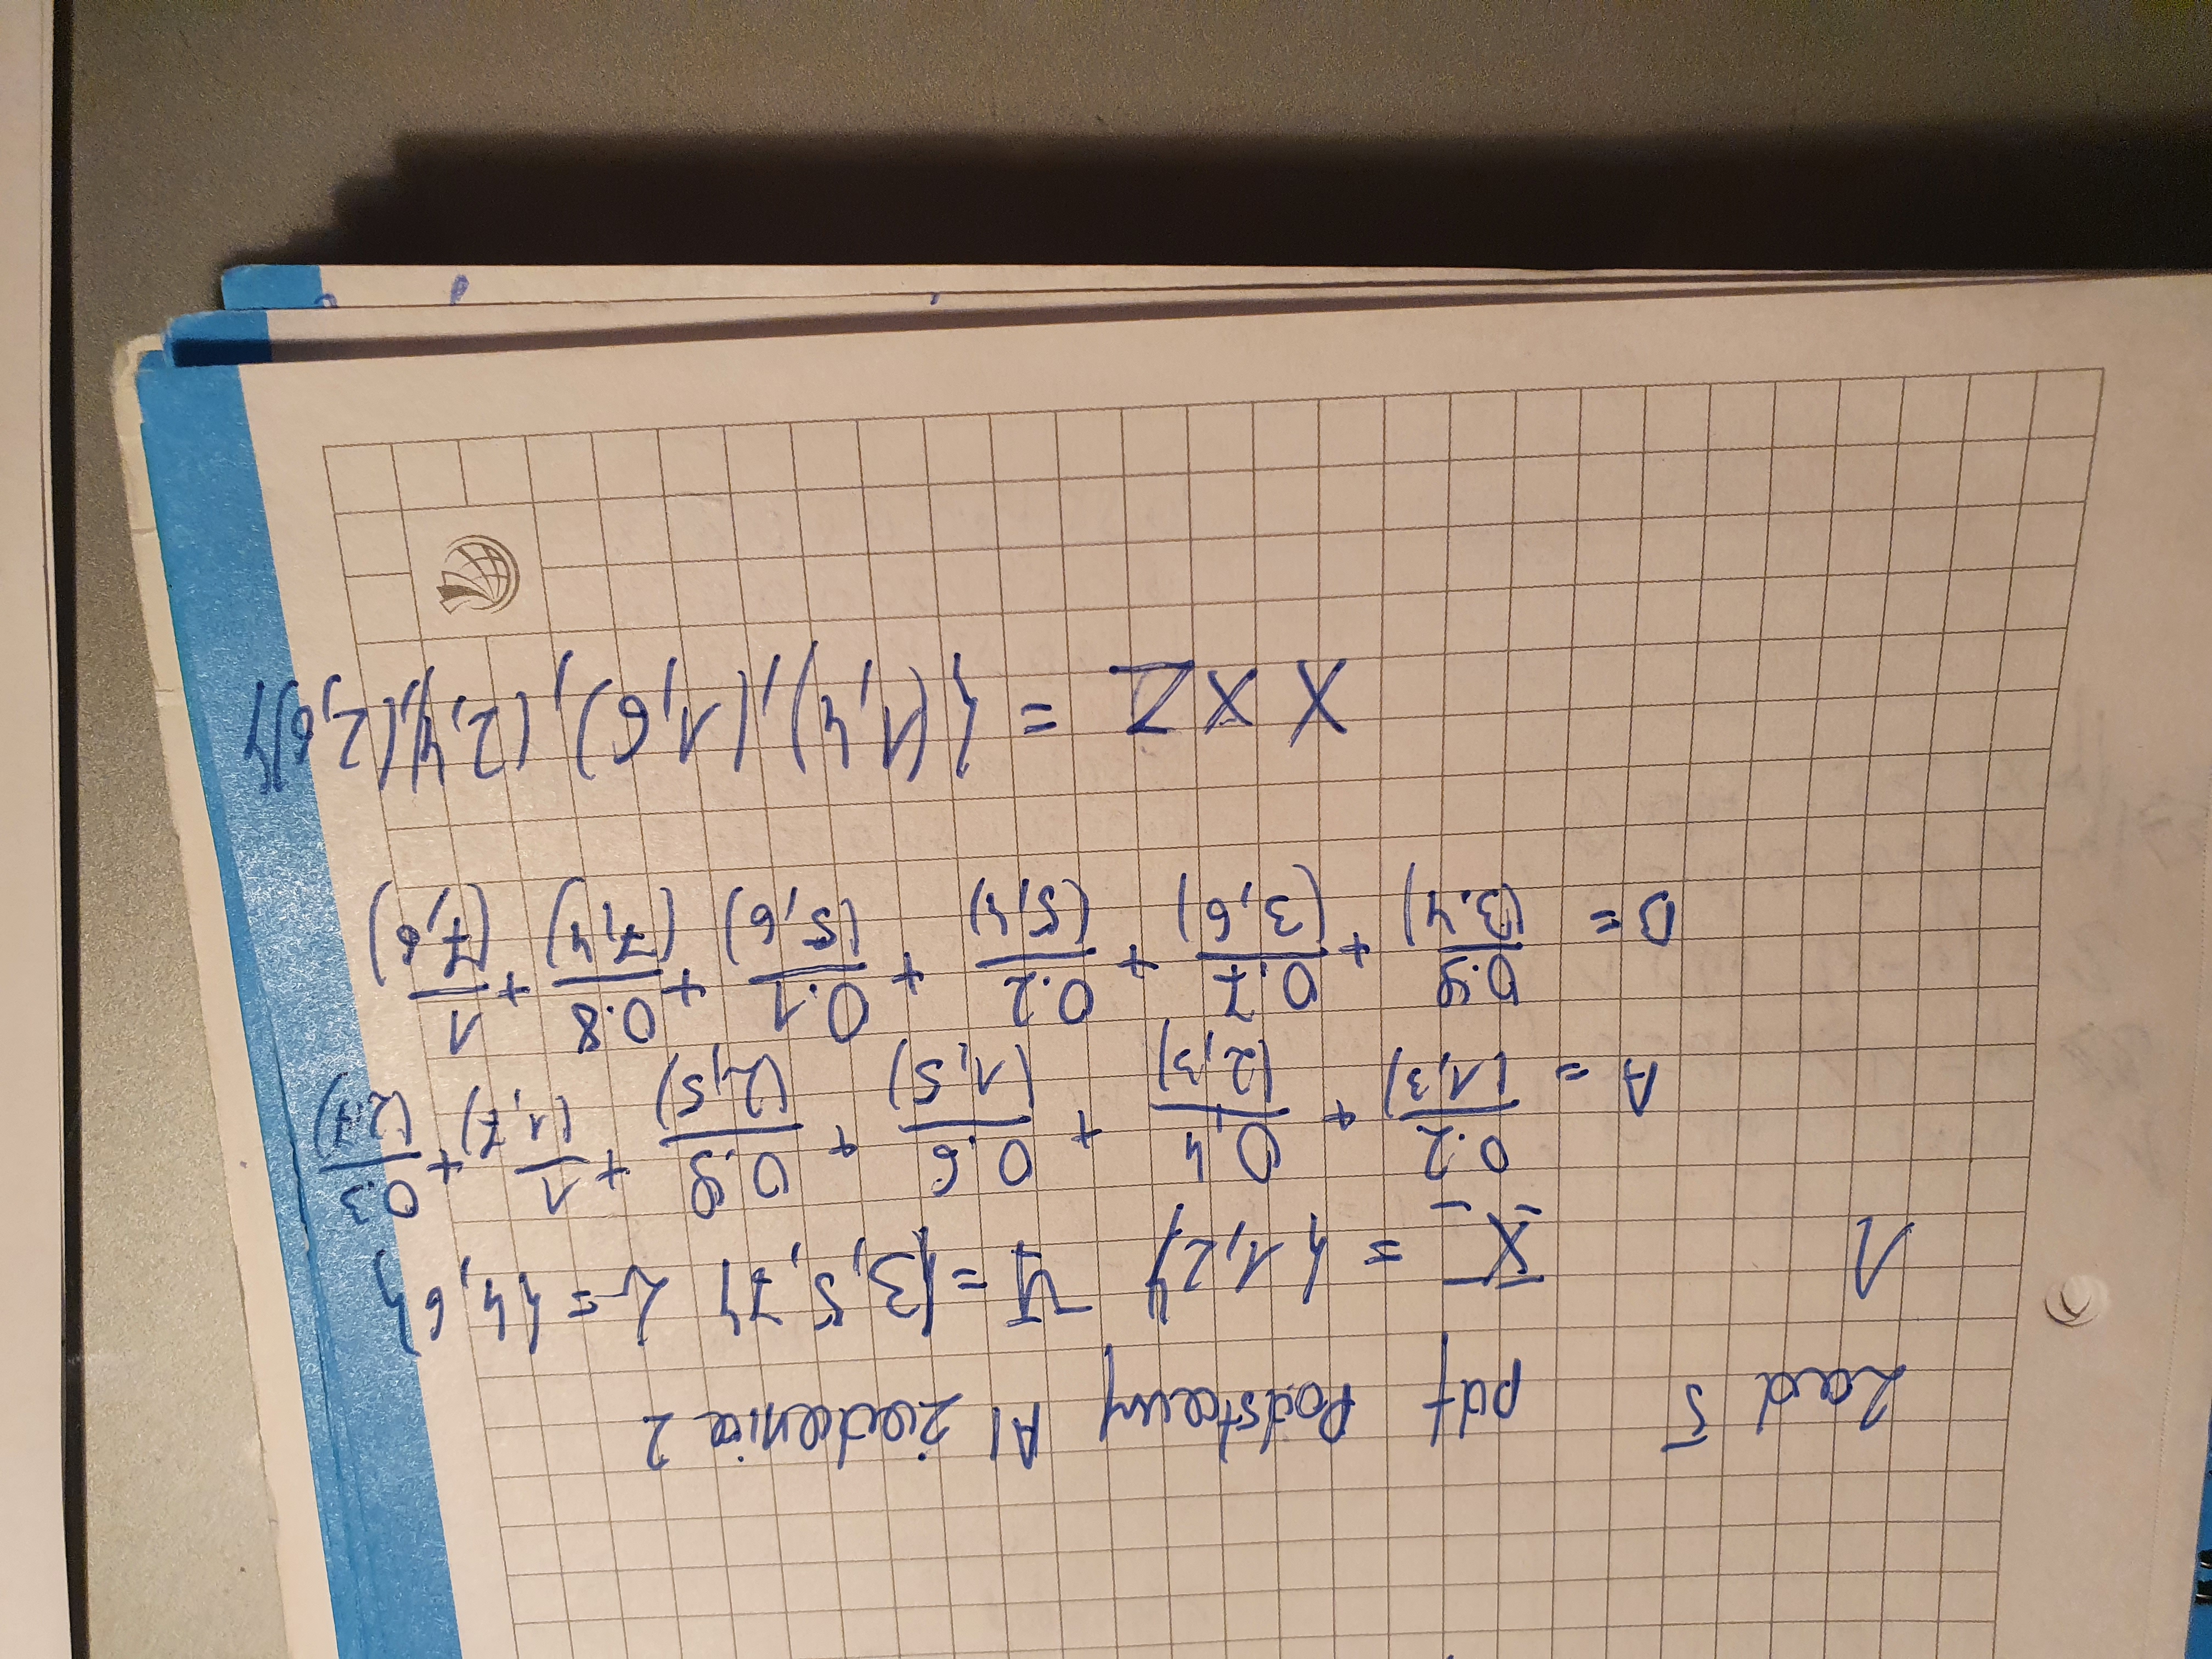 Zad 5 pdf Podstawy AI zadania 2
1 X = {1,2} Y = {3,5,7} Z = {4,6}
A = 0.2/(1,3) + 0,4/(2,3) + 0.6/(1,5) + 0.9/(2,5) + 1/(1,7) + 0.3/(2,7)
B = 0.9/(3.4) + 0.7/(3,6) + 0.2/(5,4) + 0.1/(5,6) + 0.8/(7,4) + 1/(7,6)
X x Z = {(1,4),(1,6),(2,4),(2,6)}